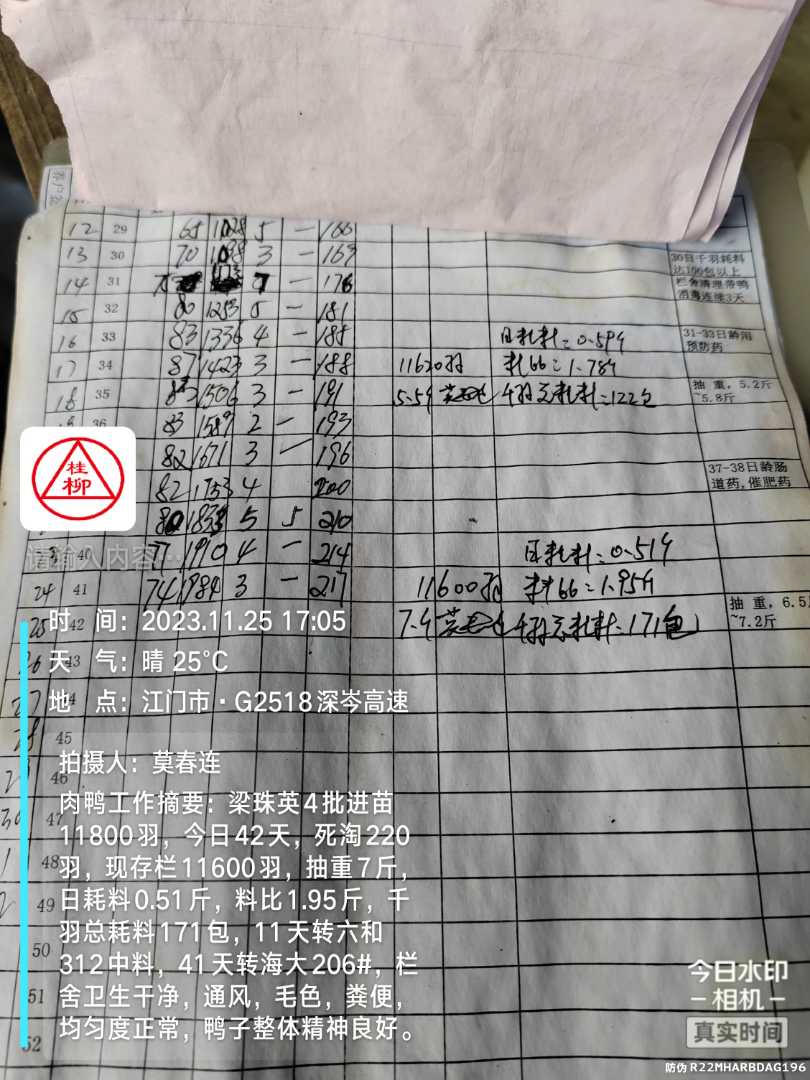 12 29 65 1028 5 — 166
13 30 70 1098 3 — 169
14 31 — 176
15 32 80 1253 5 — 181
16 33 83 1336 4 — 185 日耗料=0.59斤
17 34 87 1423 3 — 188 11620羽 料比=1.78斤
18 35 83 1506 3 — 191 5.5斤 千羽总耗料=122包
36 83 1589 2 — 193
82 1671 3 — 196
82 1753 4 200
80 1833 5 5 210
40 77 1910 4 — 214 日耗料=0.51斤
24 41 74 1984 3 — 217 11600羽 料比=1.95斤
25 42 7斤 千羽总耗料=171包
26 43
27
45
46
47
48
49
50
51
52
30日千羽耗料
达100包以上
栏舍清理带鸭
消毒连续3天
31-33日龄用
预防药
抽重,5.2斤
~5.8斤
37-38日龄肠
道药,催肥药
抽重,6.5
~7.2斤
桂
柳
请输入内容…
时 间:2023.11.25 17:05
天 气:晴 25℃
地 点:江门市·G2518深岑高速
拍摄人:莫春连
肉鸭工作摘要:梁珠英4批进苗
11800羽,今日42天,死淘220
羽,现存栏11600羽,抽重7斤,
日耗料0.51斤,料比1.95斤,千
羽总耗料171包,11天转六和
312中料,41天转海大206#,栏
舍卫生干净,通风,毛色,粪便,
均匀度正常,鸭子整体精神良好。
今日水印
-相机-
真实时间
防伪 R22MHARBDAG196